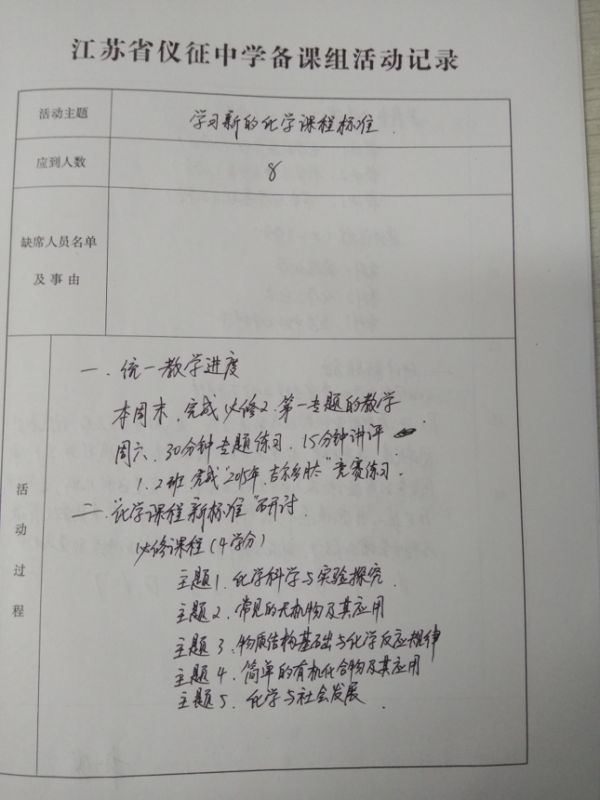 江苏省仪征中学备课组活动记录
活动主题
学习新的化学课程标准.
应到人数
8
缺席人员名单
及事由
活动过程
一.统一教学进度
本周末、完成必修2、第一专题的教学
周六、30分钟专题练习、15分钟讲评
1.2班 完成"2015年 竞赛练习.
二."化学课程新标准"研讨
必修课程(4学分)
主题1.化学科学与实验探究.
主题2.常见的无机物及其应用
主题3.物质结构基础与化学反应规律
主题4.简单的有机化合物及其应用
主题5.化学与社会发展.